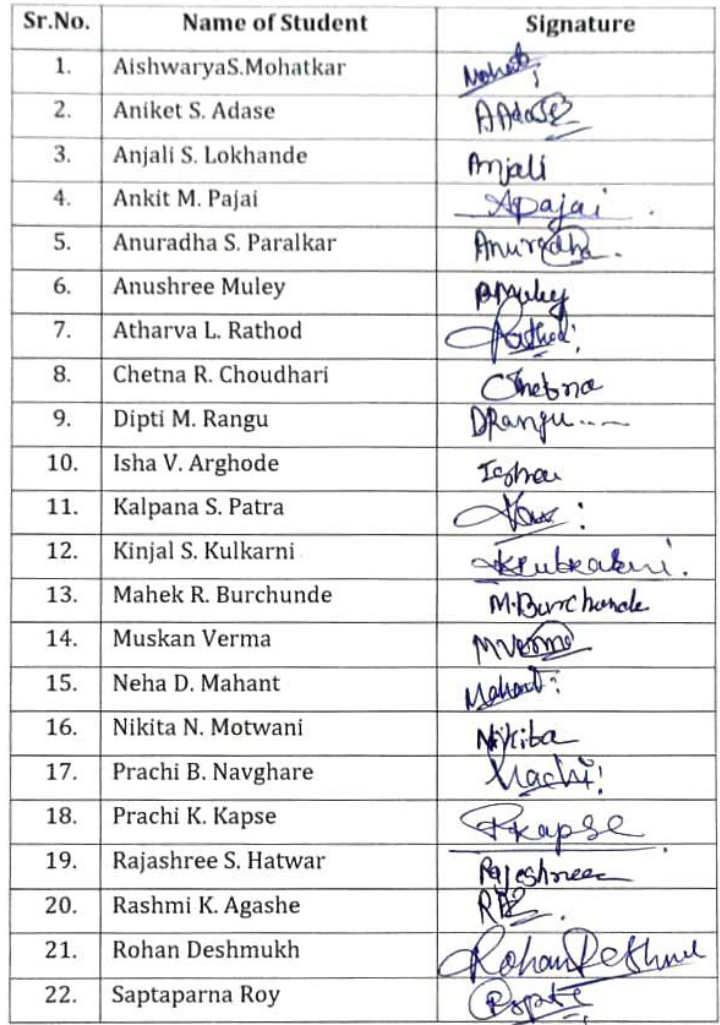 Sr.No. Name of Student Signature
1. AishwaryaS.Mohatkar
2. Aniket S. Adase AAdase
3. Anjali S. Lokhande Anjali
4. Ankit M. Pajai Apajai
5. Anuradha S. Paralkar Anuradha.
6. Anushree Muley AMuley
7. Atharva L. Rathod Rathod
8. Chetna R. Choudhari Chetna
9. Dipti M. Rangu DRangu
10. Isha V. Arghode Isha
11. Kalpana S. Patra
12. Kinjal S. Kulkarni
13. Mahek R. Burchunde M.Burchunde
14. Muskan Verma MVerma
15. Neha D. Mahant Mahant
16. Nikita N. Motwani Nikita
17. Prachi B. Navghare Prachi
18. Prachi K. Kapse PKapse
19. Rajashree S. Hatwar Rajeshree
20. Rashmi K. Agashe
21. Rohan Deshmukh Rohan
22. Saptaparna Roy